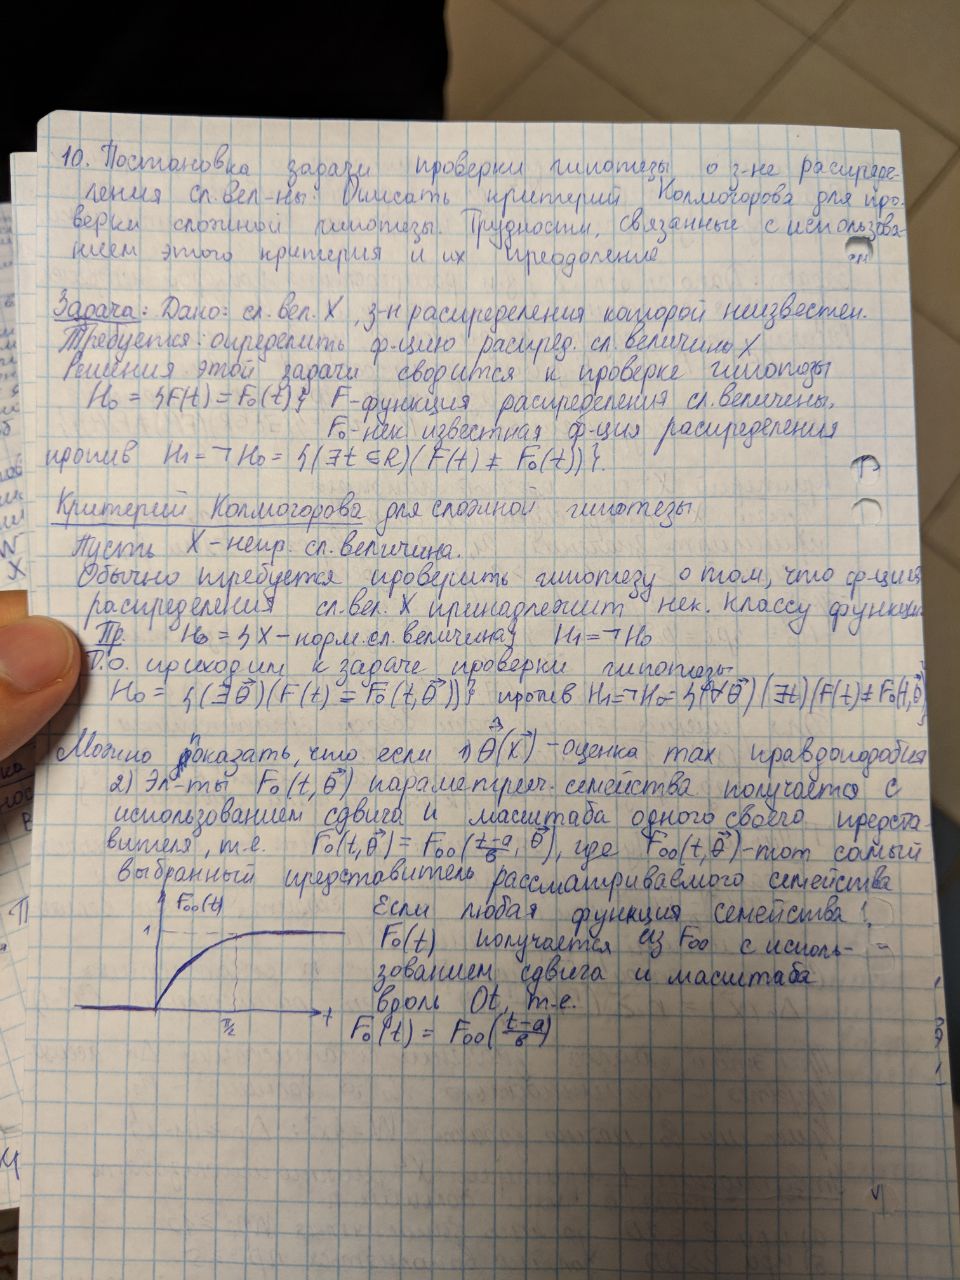 10. Постановка задачи проверки гипотезы о з-не распреде-
ления сл.вел-ны. Описать критерий Колмогорова для про-
верки сложной гипотезы. Трудности, связанные с использова-
нием этого критерия и их преодоление
Задача: Дано: сл.вел. X, з-н распределения которой неизвестен.
Требуется: определить ф-цию распред. сл. величины X
Решения этой задачи сводится к проверке гипотезы
H₀ = {F(t) = F₀(t)} F-функция распределения сл. величены,
F₀-нек известная ф-ция распределения
против H₁ = ¬H₀ = {(∃t ∈ R)(F(t) ≠ F₀(t))}.
Критерий Колмогорова для сложной гипотезы
Пусть X - непр. сл. величина.
Обычно требуется проверить гипотезу о том, что ф-ция
распределения сл. вел. X принадлежит нек. классу функции
Пр. H₀ = {X - норм. сл. величина} H₁ = ¬H₀
Т.О. приходим к задаче проверки гипотезы
H₀ = {(∃θ⃗)(F(t) = F₀(t,θ⃗))} против H₁ = ¬H₀ = {(∀θ⃗)(∃t)(F(t) ≠ F₀(t,θ⃗)}
Можно показать, что если 1) θ̂(X⃗) - оценка max правдоподобия
2) Эл-ты F₀(t,θ⃗) параметрич. семейства получается с
использованием сдвига и масштаба одного своего предста-
вителя, т.е. F₀(t,θ⃗) = F₀₀(t-a/в, θ⃗), где F₀₀(t,θ⃗) - тот самый
выбранный представитель рассматриваемого семейства
F₀₀(t)
1
π/2
t
Если любая функция семейства
F₀(t) получается из F₀₀ с исполь-
зованием сдвига и масштаба
вдоль Ot, т.е.
F₀(t) = F₀₀(t-a/в)